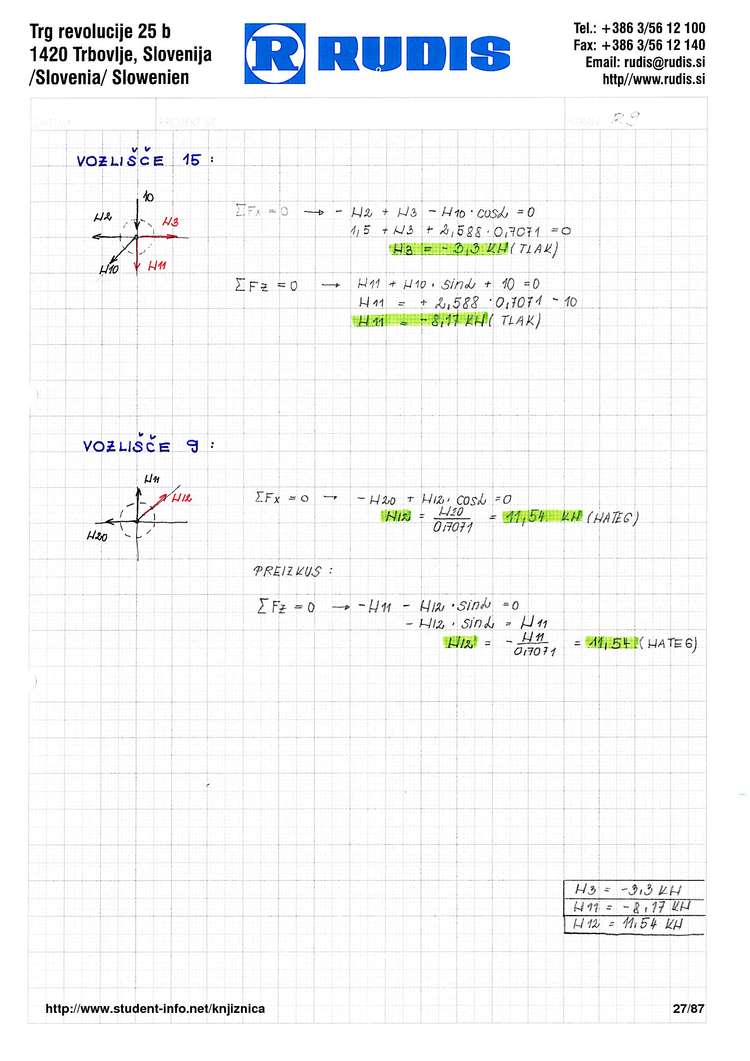 Trg revolucije 25 b
1420 Trbovlje, Slovenija
/Slovenia/ Slowenien
R RUDIS
Tel.: +386 3/56 12 100
Fax: +386 3/56 12 140
Email: rudis@rudis.si
http//www.rudis.si
29
VOZLIŠČE 15 :
10
N2
N3
N10
N11
ΣFx = 0 → - N2 + N3 - N10 · cosα = 0
1,5 + N3 + 2,588 · 0,7071 = 0
N3 = - 3,3 KN (TLAK)
ΣFz = 0 → N11 + N10 · sinα + 10 = 0
N11 = + 2,588 · 0,7071 - 10
N11 = - 8,17 KN (TLAK)
VOZLIŠČE 9 :
N11
N12
N20
ΣFx = 0 → - N20 + N12 · cosα = 0
N12 = N20 / 0,7071 = 11,54 KN (NATEG)
PREIZKUS :
ΣFz = 0 → - N11 - N12 · sinα = 0
- N12 · sinα = N11
N12 = - N11 / 0,7071 = 11,54 (NATEG)
N3 = -3,3 KN
N11 = -8,17 KN
N12 = 11,54 KN
http://www.student-info.net/knjiznica
27/87